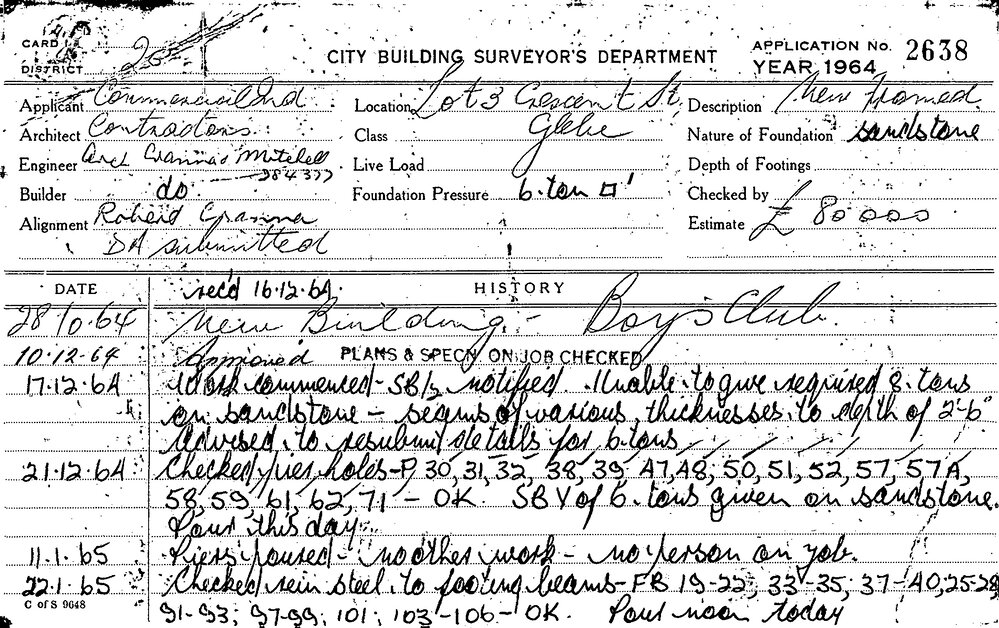 CARD 1
DISTRICT 20
CITY BUILDING SURVEYOR'S DEPARTMENT
APPLICATION No. 2638
YEAR 1964
Applicant Commercial Ind
Location Lot 3 Crescent St.
Description New Framed
Architect Contractors
Class Glebe
Nature of Foundation sandstone
Engineer Mitchell
Live Load
Depth of Footings
Builder do
Foundation Pressure 6 ton □'
Checked by
Alignment Robert
Estimate £ 80000
DA submitted
DATE
rec'd 16.12.64.
HISTORY
28 10.64 New Building - Boys Club.
10.12.64 Approved PLANS & SPECN ON JOB CHECKED
17.12.64 Work commenced - SB/2 notified. Unable to give required 8 tons
on sandstone - seams of various thicknesses to depth of 2'-6"
Advised to resubmit details for 6 tons
21.12.64 Checked pier holes - P, 30, 31, 32, 38, 39, 47, 48, 50, 51, 52, 57, 57A,
58, 59, 61, 62, 71 - OK. SBV of 6 tons given on sandstone.
Pour this day.
11.1.65 Piers poured - no other work - no person on job.
22.1.65 Checked rein steel to footing beams - FB 19-22, 33-35; 37-40, 25-28
C of S 9648
91-93; 97-99; 101; 103-106 - OK. Pour noon today